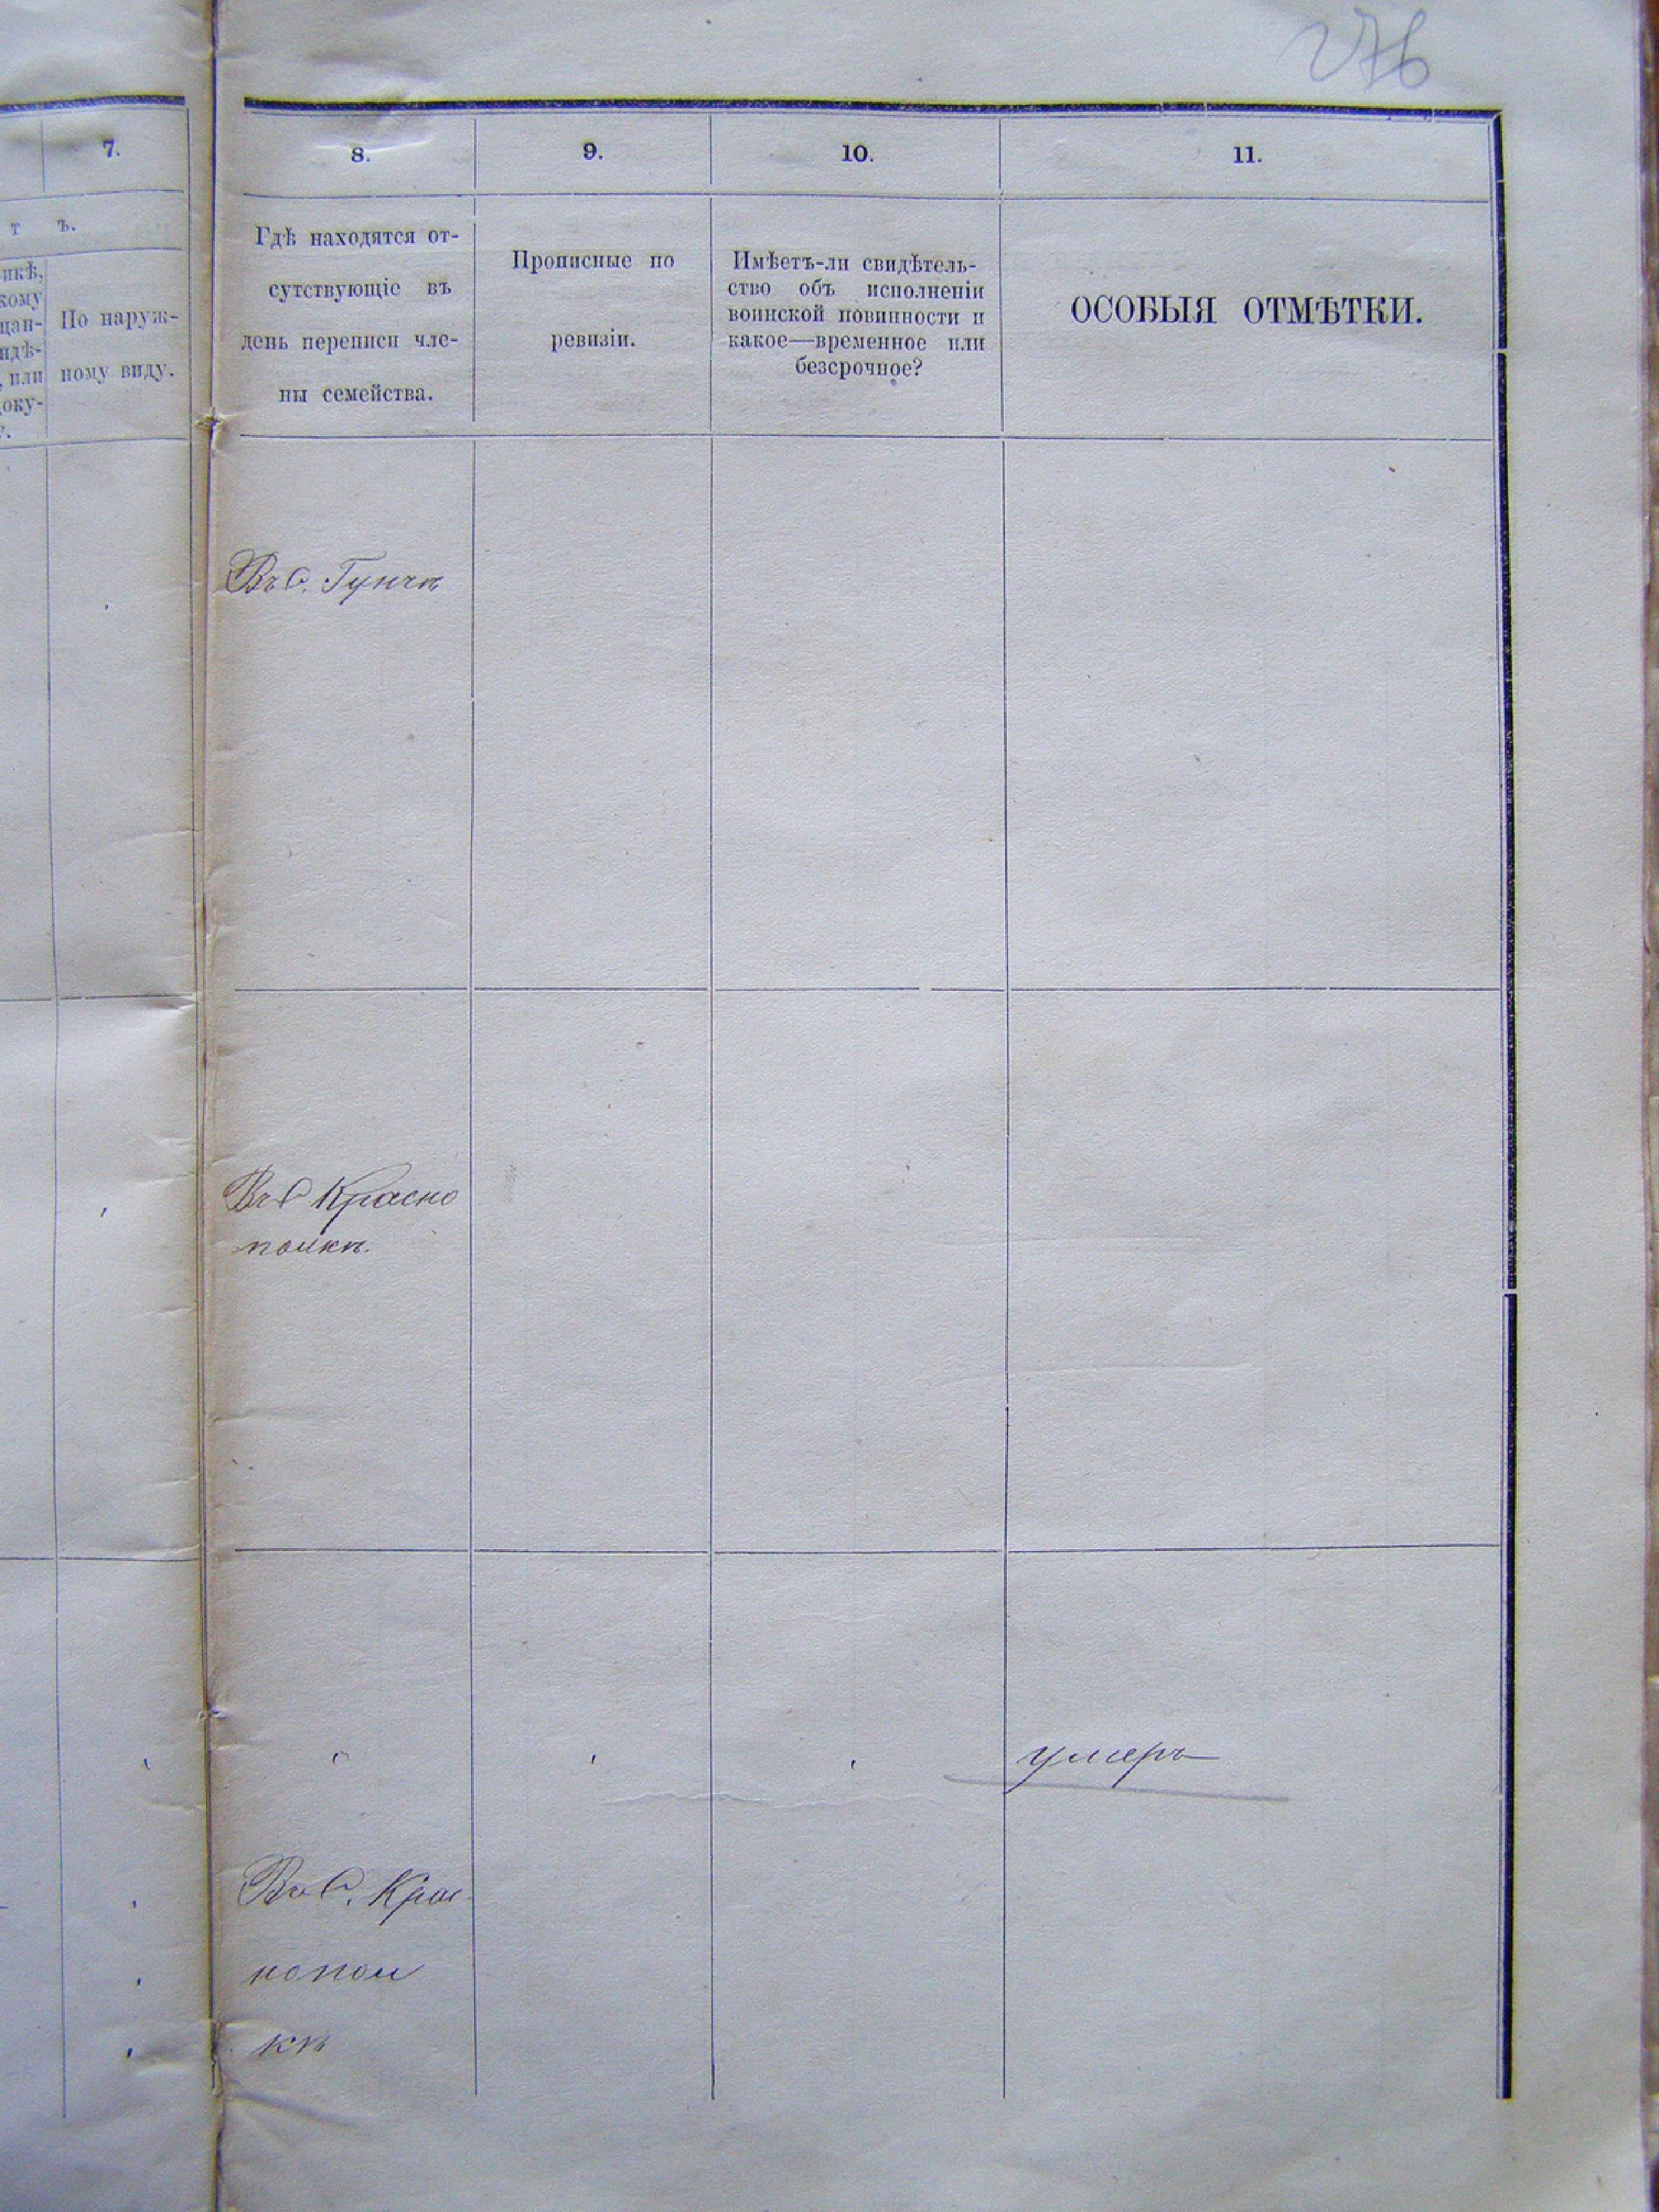 276
7.
8.
9.
10.
11.
т ъ.
По наруж-
ному виду.
Гдѣ находятся от-
сутствующіе въ
день переписи чле-
ны семейства.
Прописные по
ревизіи.
Имѣетъ-ли свидѣтель-
ство объ исполненіи
воинской повинности и
какое—временное или
безсрочное?
ОСОБЫЯ ОТМѢТКИ.
Въ С. Гунчѣ
Въ С Красно
полкѣ.
умеръ
Въ С. Крас
нопол
кѣ